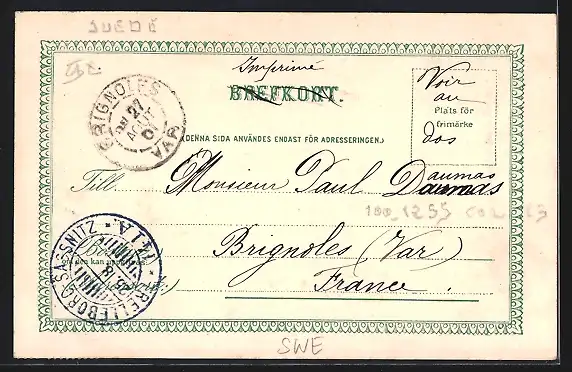 SUEDE
Imprimé
BREFKORT.
(DENNA SIDA ANVÄNDES ENDAST FÖR ADRESSERINGEN.)
Voir
au
dos
Plats för
frimärke
BRIGNOLES
27
AOUT
VAR
Till
Monsieur Paul Daumas
aumas
Brignoles (Var)
France.
TRELLEBORG-SASSNITZ
SWE